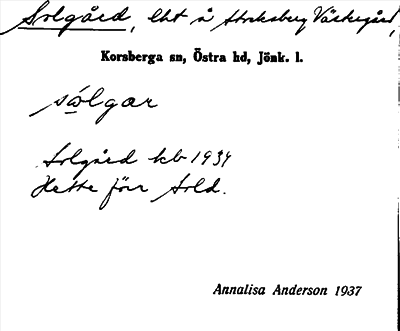 Solgård, lht å Stocksberg Västergård,
Korsberga sn, Östra hd, Jönk. l.
sólgar
Solgård kb 1934
Hette förr Sold.
Annalisa Anderson 1937